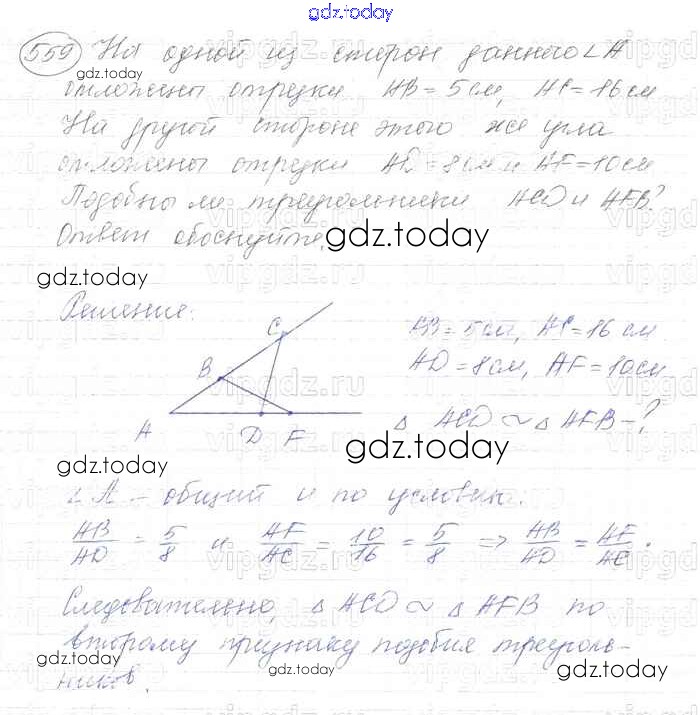 gdz.today
559 На одной из сторон данного ∠A
gdz.today
отложены отрезки AB = 5 см, AC = 16 см
На другой стороне этого же угла
gdz.today
отложены отрезки AD = 8 см и AF = 10 см
Подобны ли треугольники ACD и AFB?
Ответ обоснуйте.
gdz.today
gdz.today
Решение:
AB = 5 см, AC = 16 см
AD = 8 см, AF = 10 см
△ ACD ~ △ AFB - ?
C
B
A D F
gdz.today
gdz.today
∠A - общий и по условию.
AB/AD = 5/8 и AF/AC = 10/16 = 5/8 => AB/AD = AF/AC.
Следовательно, △ ACD ~ △ AFB по
второму признаку подобия треуголь-
gdz.today gdz.today gdz.today
ников.